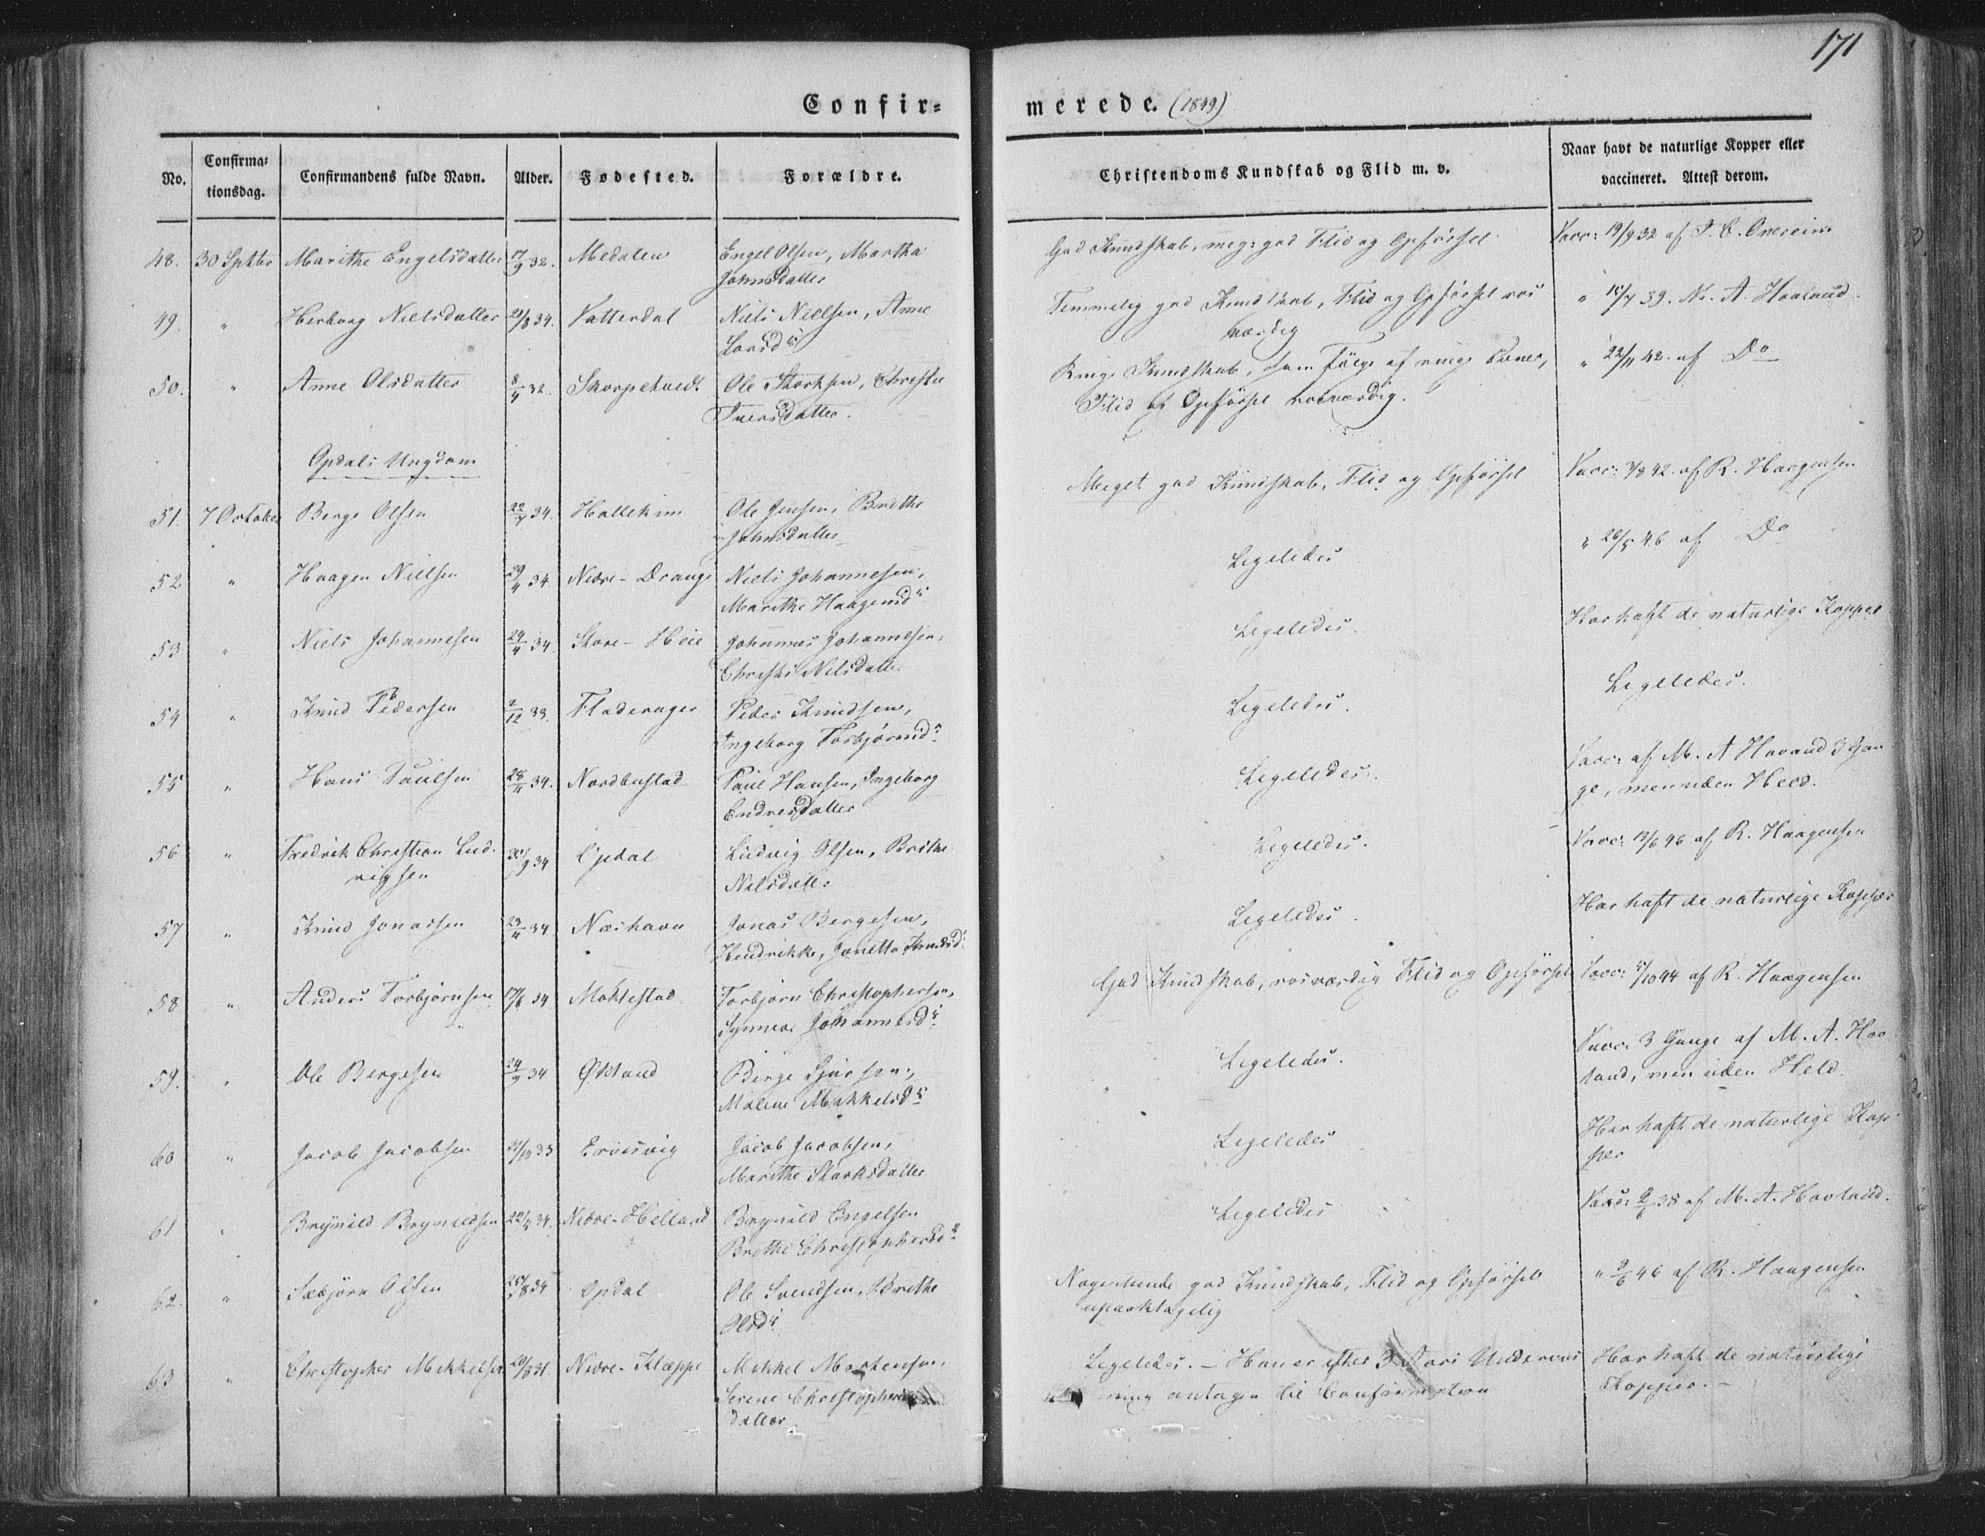 171
Confir-
merede. (1849)
No.
Confirma-
tionsdag.
Confirmandens fulde Navn.
Alder.
Fødested.
Forældre.
Christendoms Kundskab og Flid m. v.
Naar havt de naturlige Kopper eller
vaccineret. Attest derom.
48. 30 Septbr Marithe Engelsdatter 17/9 32. Medalen Engel Olsen, Martha
Johnsdatter
God Kundskab, meg: god Flid og Opførsel. Vacc: 19/9 32 af
49. " Herborg Nielsdatter 21/8 34. Vatterdal Niels Nielsen, Anne
Larsd:
Temmelig god Kundskab, Flid og Opførsel ros-
værdig
39. M. A. Hovland.
50. " Anne Olsdatter 8/4 32. Skorpetvedt Ole Størksen, Christi
Iversdatter.
Ringe Kundskab, som Følge af ringe Evner,
Flid og Opførsel rosværdig.
" 22/11 42. af Do
Opdals Ungdom
51 7 October Berge Olsen 22/4 34. Hallekim Ole Jensen, Brithe
Johnsdatter
Meget god Kundskab, Flid og Opførsel
Vacc: 3/8 42. af R. Haagensen
52 " Haagen Nielsen 29/4 34. Nedre-Drange Niels Johannesen,
Marithe Haagensd:
Ligeledes
" 26/5 46 af Do
53 " Niels Johannesen 29/4 34. Store-Heie Johannes Johannesen,
Christi Nilsdatter
Ligeledes.
Har haft de naturlige Kopper
54 " Knud Pedersen 2/12 33. Fladerager Peder Knudsen,
Ingeborg Torbjørnsd:
Ligeledes.
Ligeledes.
55 " Hans Paulsen 28/11 34. Nordbustad Paul Hansen, Ingeborg
Endresdatter
Ligeledes.
Vacc: af M. A Hovland 3 Gan-
ge, men uden Held.
56 " Fredrik Christian Lud-
vigsen
30/9 34 Opdal Ludvig Olsen, Brithe
Nilsdatter
Ligeledes.
Vacc: 13/6 46 af R. Haagensen
57 " Knud Jonassen 23/11 34 Næshavn Jonas Bergesen,
Hendrikke, Janetta Knudsd:
Ligeledes.
Har haft de naturlige Kopper
58 " Anders Torbjørnsen 17/6 34 Møklestad Torbjørn Christophersen,
Synneve Johannesd:
God Kundskab, rosværdig Flid og Opførsel
Vacc: 5/10 44 af R. Haagensen
59. " Ole Bergesen 24/9 34 Økland Berge
Malene Mikkelsd:
Ligeledes.
Vacc: 3 Gange af M. A. Hov-
land, men uden Held.
60 " Jacob Jacobsen 21/10 33 Ervesvig Jacob Jacobsen,
Marithe Størksdatter
Ligeledes
Har haft de naturlige Kop-
per
61 " Brynild Brynildsen 22/4 34. Nedre-Helland Brynild Engelsen
Brithe Christophersd:
Ligeledes
Vacc: 2/6 38 af M. A. Hovland.
62. " Sæbjørn Olsen 25/8 34 Opdal Ole Svendsen, Brithe
Olsd:
Nogenlunde god Kundskab, Flid og Opførsel
upaaklagelig
" 2/6 46 af R. Haagensen
63 " Christopher Mikkelsen 20/8 31. Nedre-Kleppe Mikkel Mortensen,
Serene Christophers-
datter
Ligeledes. - Han er efter 3 Aars Underviis-
ning antagen til Confirmation
Har haft de naturlige
Kopper. -